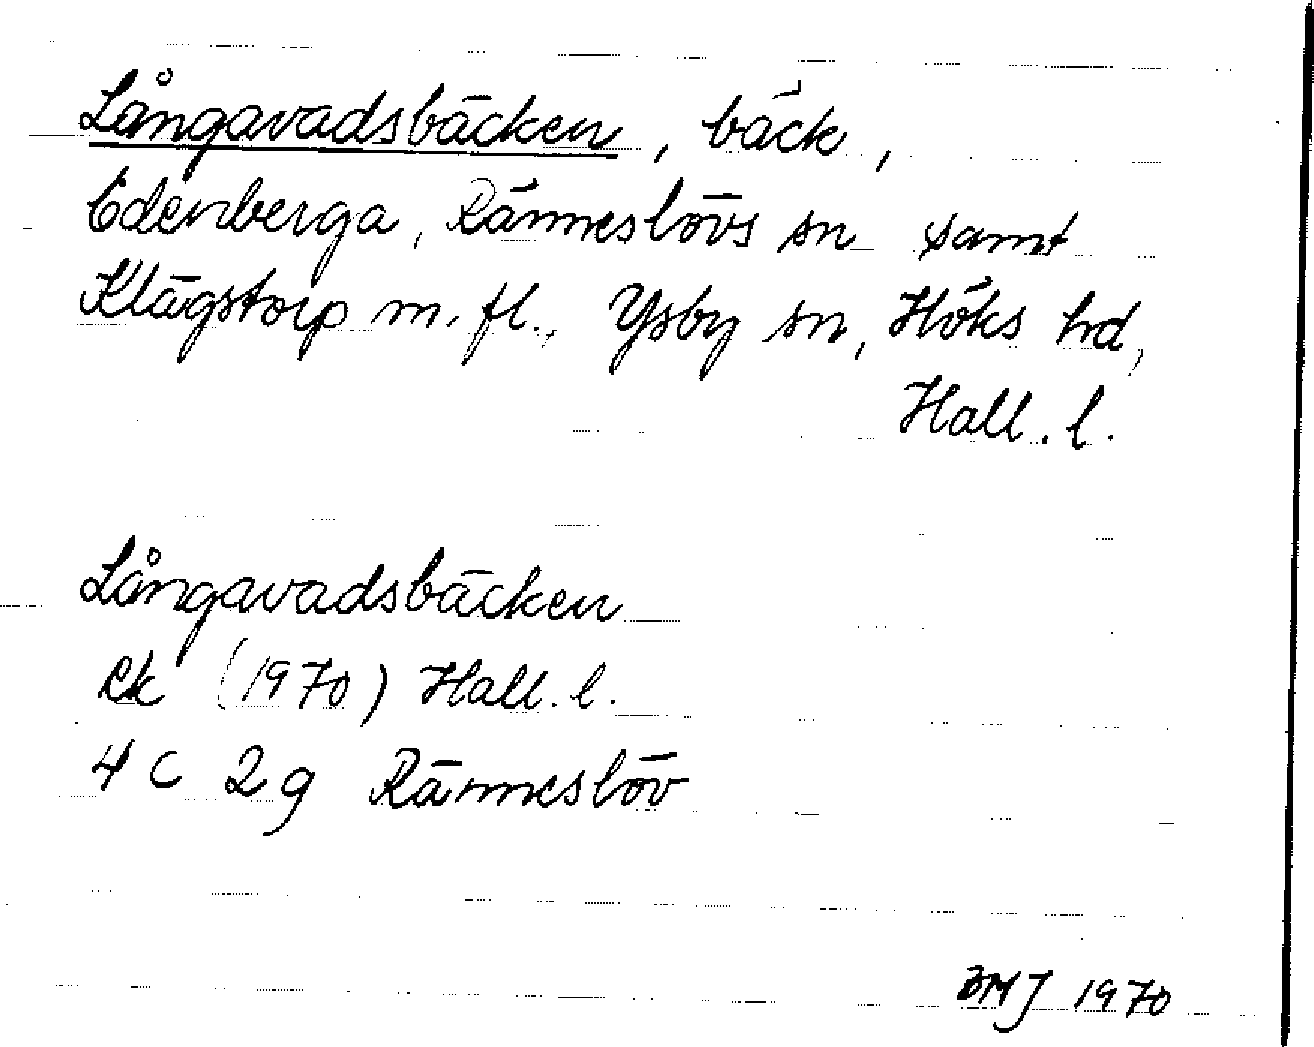 Långavadsbäcken, bäck,
Edenberga, Ränneslövs sn samt
Klägstorp m. fl., Ysby sn, Höks hd,
Hall. l.
Långavadsbäcken
ek (1970) Hall. l.
4 C 2 g Ränneslöv
BMJ 1970